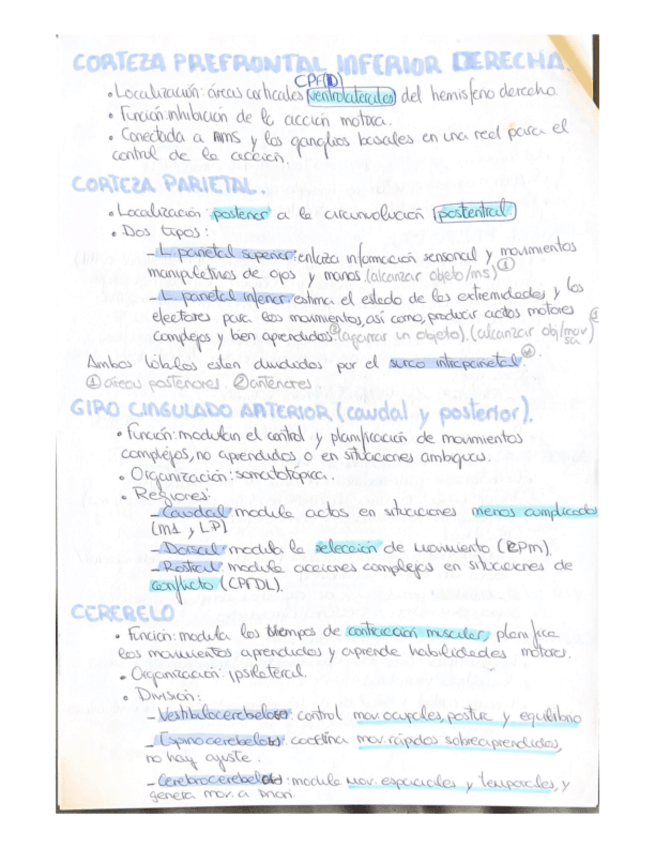 CORTEZA PREFRONTAL INFERIOR DERECHA.
CPF(D)
• Localización: áreas corticales ventrolaterales del hemisferio derecho.
• Función: inhibición de la acción motora.
• Conectada a AMS y los ganglios basales en una red para el
control de la acción.
CORTEZA PARIETAL.
• Localización: posterior a la circunvolución postcentral
• Dos tipos:
- L. parietal superior: enlaza información sensorial y movimientos
manipulativos de ojos y manos (alcanzar objeto/ms) ①
- L. parietal inferior: estima el estado de las extremidades y los
efectores para los movimientos, así como, producir actos motores ①
complejos y bien aprendidos ② (agarrar un objeto). (alcanzar obj/mov)
Ambos lóbulos están divididos por el surco intraparietal.
① áreas posteriores. ② anteriores.
GIRO CINGULADO ANTERIOR (caudal y posterior).
• Función: modulan el control y planificación de movimientos
complejos, no aprendidos o en situaciones ambiguas.
• Organización: somatotópica.
• Regiones:
- Caudal: modula actos en situaciones menos complicadas
(M1 y LP)
- Dorsal: modula la selección de movimiento (CPM).
- Rostral: modula acciones complejas en situaciones de
conflicto (CPFDL).
CEREBELO
• Función: modula los tiempos de contracción muscular, planifica
los movimientos aprendidos y aprende habilidades motoras.
• Organización: ipsilateral.
• División:
- Vestibulocerebeloso: control mov. oculares, postura y equilibrio
- Espinocerebeloso: coordina mov. rápidos sobreaprendidos,
no hay ajuste.
- Cerebrocerebeloso: modula mov. espaciales y temporales, y
genera mov. a priori.